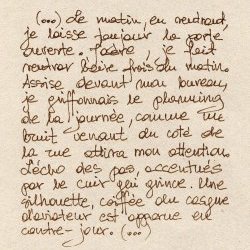 (...) Le matin, en rentrant,
je laisse toujours la porte
ouverte. J'adore, je fait
rentrer l'aire frais du matin.
Assise devant mon bureau,
je griffonnais le planning
de la journée, comme un
bruit venant du coté de
la rue attira mon attention.
L'écho des pas, accentués
par le cuir qui grince. Une
silhouette, coiffée du casque
d'aviateur est apparue en
contre-jour. (...